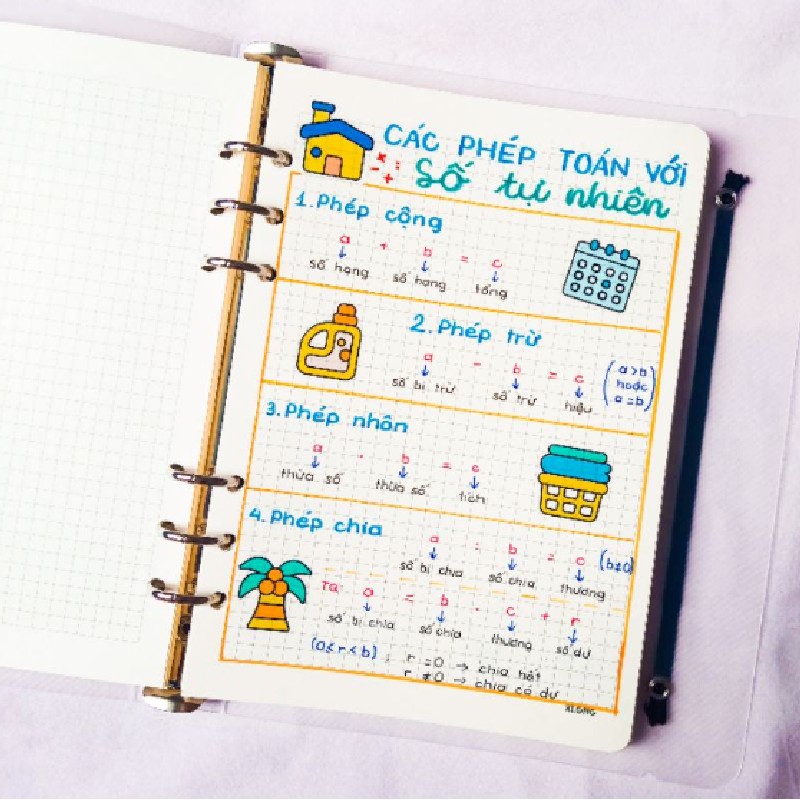 CÁC PHÉP TOÁN VỚI
Số tự nhiên
1. Phép cộng
a + b = c
số hạng số hạng tổng
2. Phép trừ
a - b = c
số bị trừ số trừ hiệu
(a > b
hoặc
a = b)
3. Phép nhân
a . b = c
thừa số thừa số tích
4. Phép chia
a : b = c (b≠0)
số bị chia số chia thương
a = b . c + r
số bị chia số chia thương số dư
(0 ≤ r < b) ; r = 0 → chia hết
r ≠ 0 → chia có dư